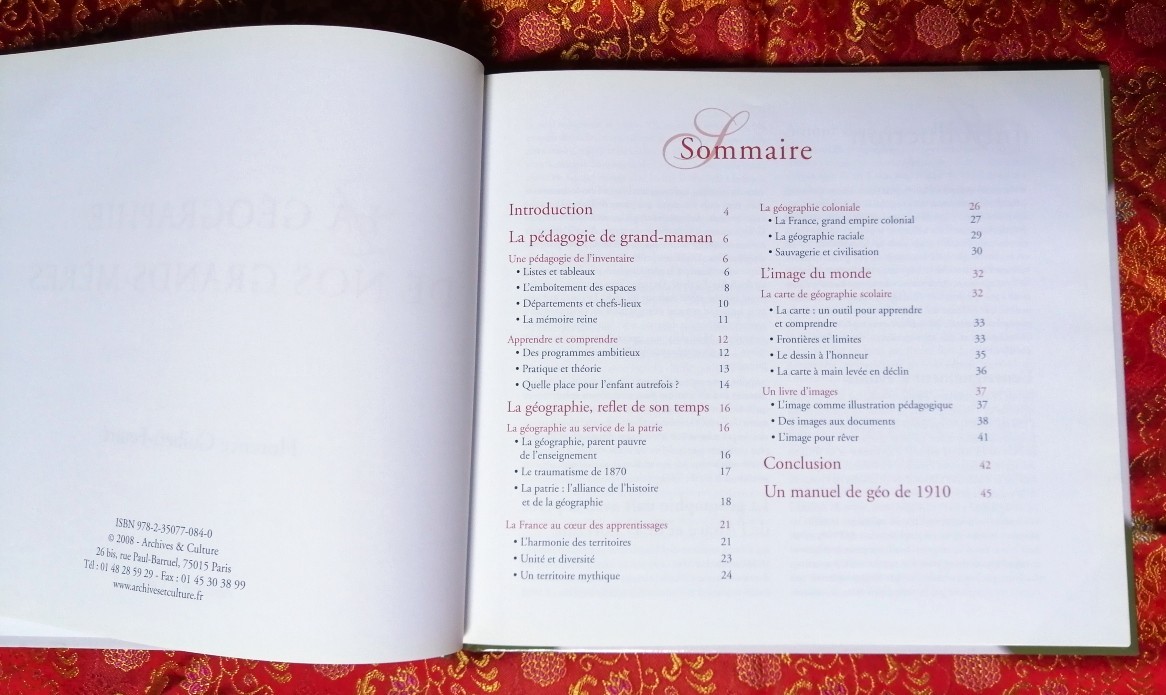 ISBN 978-2-35077-084-0
© 2008 - Archives & Culture
26 bis, rue Paul-Barruel, 75015 Paris
Tél : 01 48 28 59 29 - Fax : 01 45 30 38 99
www.archivesetculture.fr
Sommaire
Introduction 4
La pédagogie de grand-maman 6
Une pédagogie de l'inventaire 6
• Listes et tableaux 6
• L'emboîtement des espaces 8
• Départements et chefs-lieux 10
• La mémoire reine 11
Apprendre et comprendre 12
• Des programmes ambitieux 12
• Pratique et théorie 13
• Quelle place pour l'enfant autrefois ? 14
La géographie, reflet de son temps 16
La géographie au service de la patrie 16
• La géographie, parent pauvre
de l'enseignement 16
• Le traumatisme de 1870 17
• La patrie : l'alliance de l'histoire
et de la géographie 18
La France au cœur des apprentissages 21
• L'harmonie des territoires 21
• Unité et diversité 23
• Un territoire mythique 24
La géographie coloniale 26
• La France, grand empire colonial 27
• La géographie raciale 29
• Sauvagerie et civilisation 30
L'image du monde 32
La carte de géographie scolaire 32
• La carte : un outil pour apprendre
et comprendre 33
• Frontières et limites 33
• Le dessin à l'honneur 35
• La carte à main levée en déclin 36
Un livre d'images 37
• L'image comme illustration pédagogique 37
• Des images aux documents 38
• L'image pour rêver 41
Conclusion 42
Un manuel de géo de 1910 45